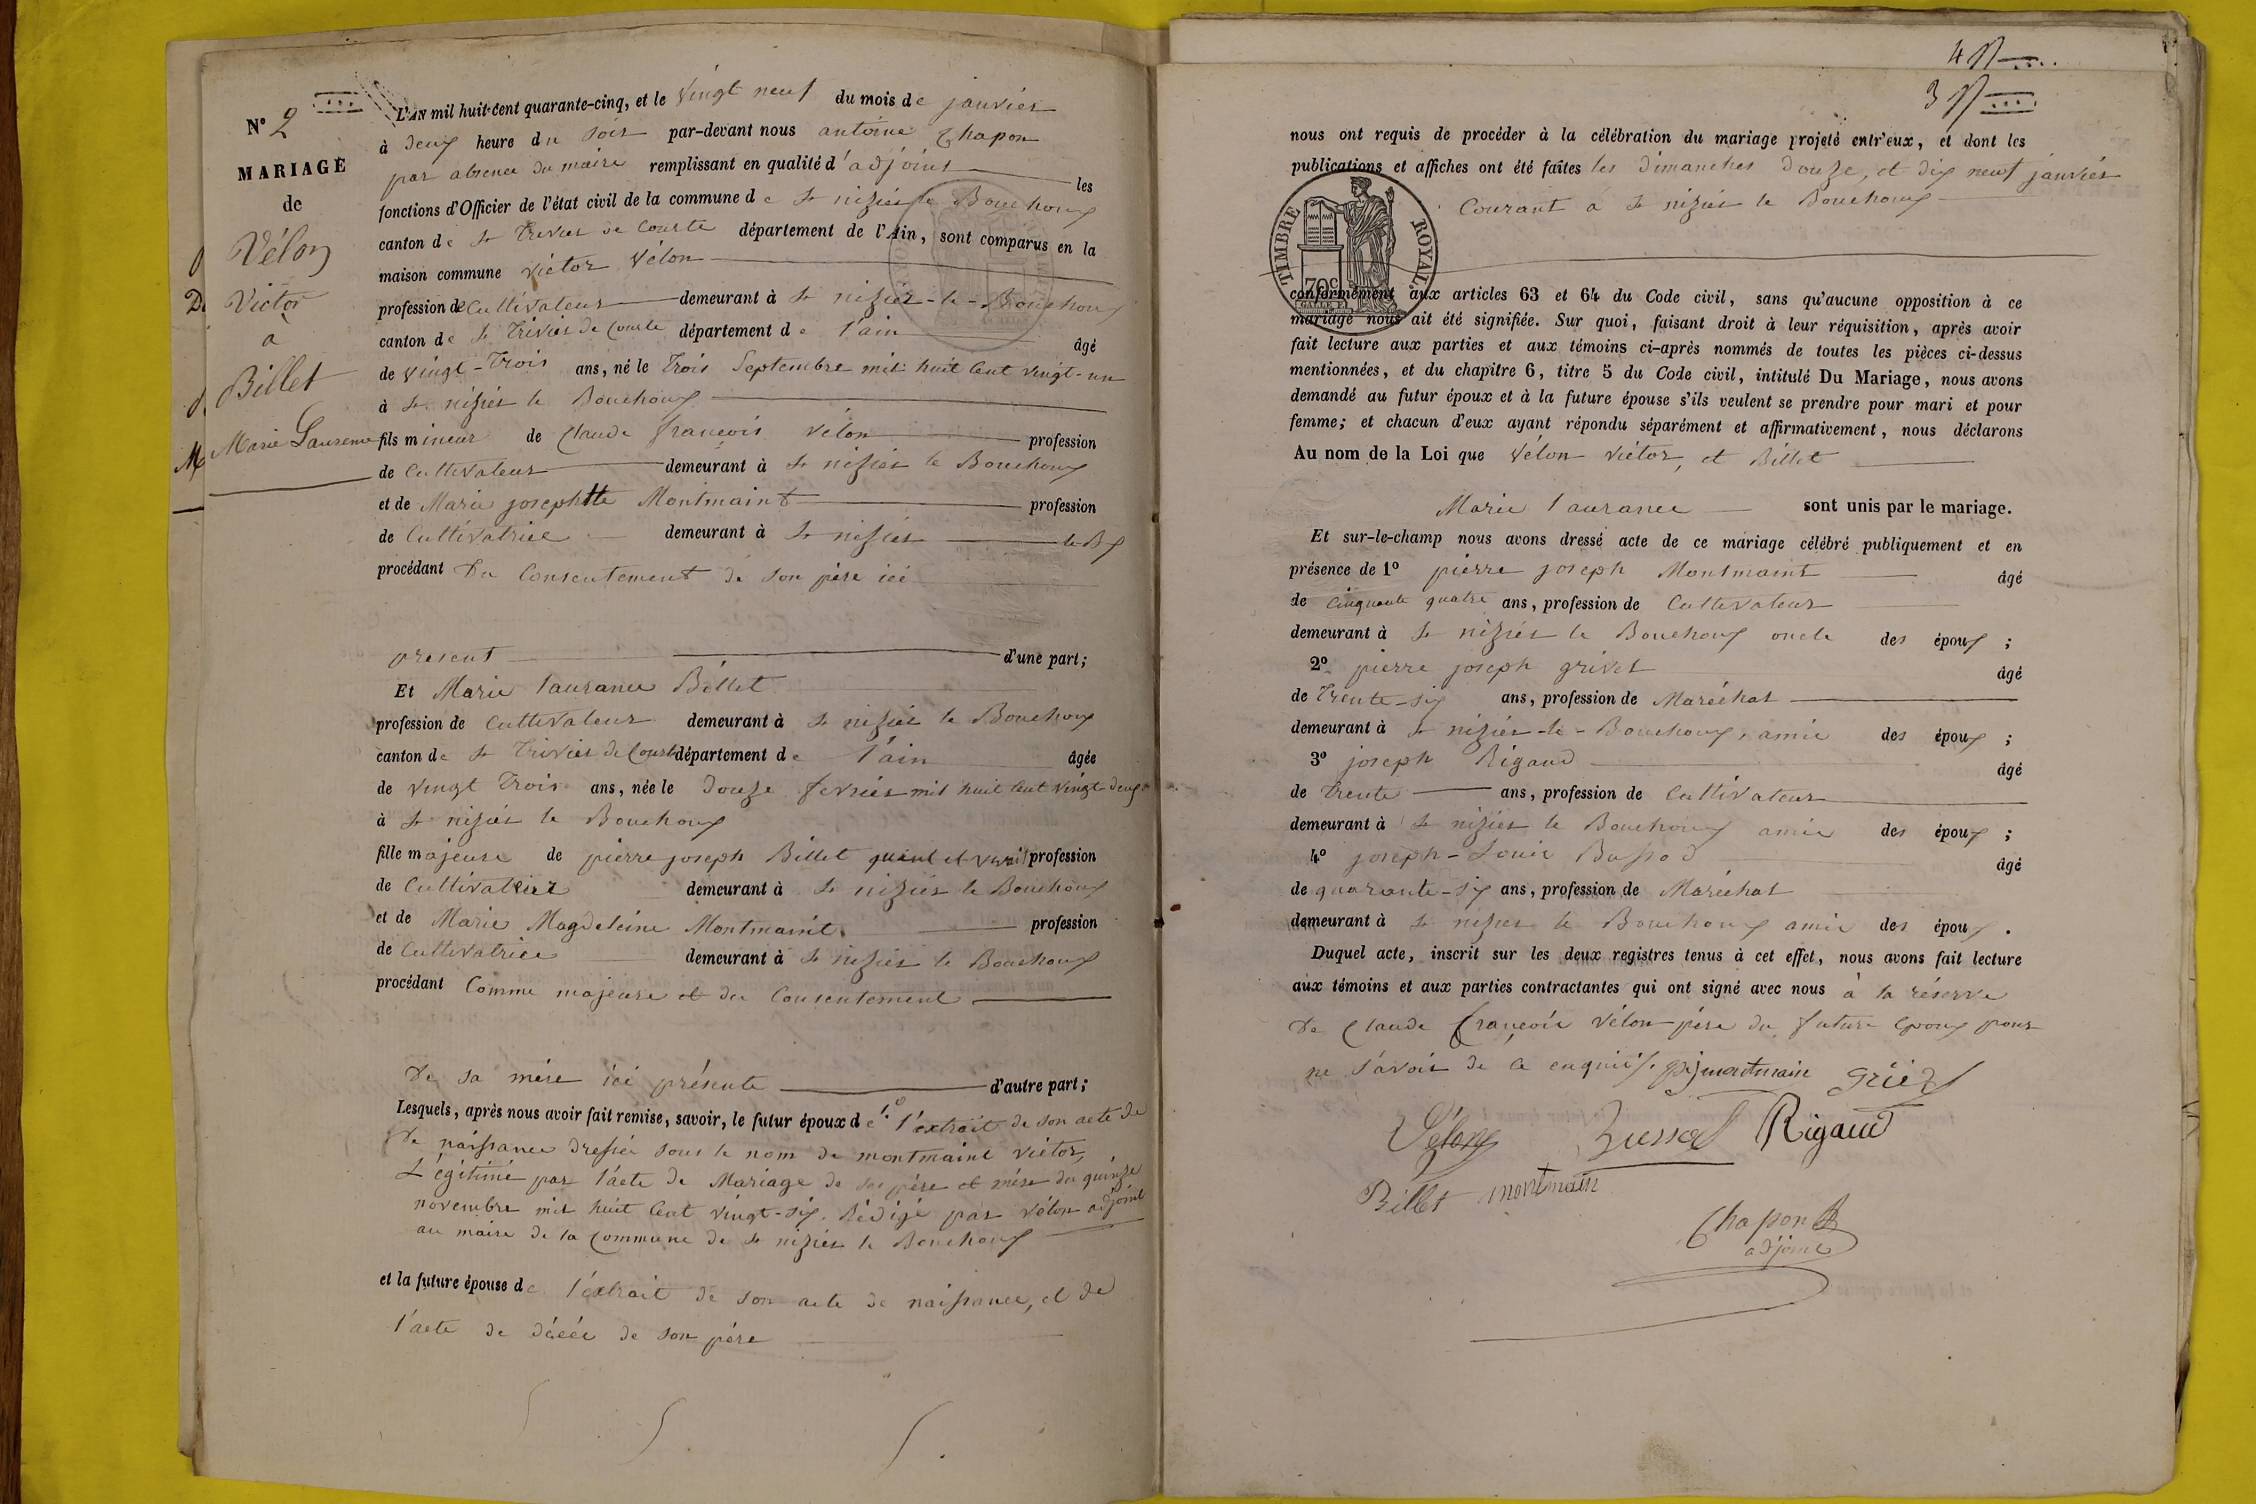 N° 2
MARIAGE
de
Vélon
Victor
à
Billet
Marie Laurence
L'AN mil huit-cent quarante-cinq, et le vingt neuf du mois de janvier
à deux heure du soir par-devant nous antoine Chapon
par absence du maire remplissant en qualité d'adjoint les
fonctions d'Officier de l'état civil de la commune de St nizier le Bouchoux
canton de St Trivier de Courte département de l'Ain, sont comparus en la
maison commune victor vélon
profession de Cultivateur demeurant à St nizier-le-Bouchoux
canton de St Trivier de Courte département de l'ain âgé
de vingt-trois ans, né le trois Septembre mil huit Cent vingt-un
à St nizier le Bouchoux
fils mineur de Claude françois vélon profession
de Cultivateur demeurant à St nizier le Bouchoux
et de Marie josephtte Montmaint profession
de Cultivatrice demeurant à St nizier le Bx
procédant Du Consentement de son père ici
présent d'une part;
Et Marie laurance Billet
profession de Cultivateur demeurant à St nizier le Bouchoux
canton de St Trivier de Courte département de l'ain âgée
de vingt trois ans, née le douze fevrier mil huit Cent vingt-deux
à St nizier le Bouchoux
fille majeure de pierre joseph Billet quand il vivait profession
de Cultivateur demeurant à St nizier le Bouchoux
et de Marie Magdeleine Montmaint profession
de Cultivatrice demeurant à St nizier le Bouchoux
procédant Comme majeure et du Consentement
De sa mère ici présente d'autre part;
Lesquels, après nous avoir fait remise, savoir, le futur époux de 1.° l'extrait de son acte de
De naissance dressée sous le nom de montmaint victor,
Légitimé par l'acte de Mariage de ses père et mère du quinze
novembre mil huit Cent vingt-six. Rédigé par vélon adjoint
au maire de la Commune de St nizier le Bouchoux
et la future épouse de l'extrait de son acte de naissance, et de
l'acte de décés de son père
4
3
nous ont requis de procéder à la célébration du mariage projeté entr'eux, et dont les
publications et affiches ont été faîtes les dimanches douze, et dix neuf janvier
Courant à St nizier le Bouchoux
TIMBRE ROYAL
70c
conformément aux articles 63 et 64 du Code civil, sans qu'aucune opposition à ce
mariage nous ait été signifiée. Sur quoi, faisant droit à leur réquisition, après avoir
fait lecture aux parties et aux témoins ci-après nommés de toutes les pièces ci-dessus
mentionnées, et du chapitre 6, titre 5 du Code civil, intitulé Du Mariage, nous avons
demandé au futur époux et à la future épouse s'ils veulent se prendre pour mari et pour
femme; et chacun d'eux ayant répondu séparément et affirmativement, nous déclarons
Au nom de la Loi que Vélon victor, et Billet
Marie laurance sont unis par le mariage.
Et sur-le-champ nous avons dressé acte de ce mariage célébré publiquement et en
présence de 1° pierre joseph Montmaint âgé
de Cinquante quatre ans, profession de Cultivateur
demeurant à St nizier le Bouchoux oncle des époux ;
2° pierre joseph grivet âgé
de trente-six ans, profession de Maréchal
demeurant à St nizier-le-Bouchoux, amie des époux ;
3° joseph Rigaud âgé
de trente ans, profession de Cultivateur
demeurant à St nizier le Bouchoux amie des époux ;
4° joseph-Louis Bussod âgé
de quarante-six ans, profession de Maréchal
demeurant à St nizier le Bouchoux amie des époux .
Duquel acte, inscrit sur les deux registres tenus à cet effet, nous avons fait lecture
aux témoins et aux parties contractantes qui ont signé avec nous à la réserve
De Claude françois vélon père du future époux pour
ne savoir de ce enquis. pj montmain
Vélon Bussod Rigaud
Billet montmain
Chapon
adjoint